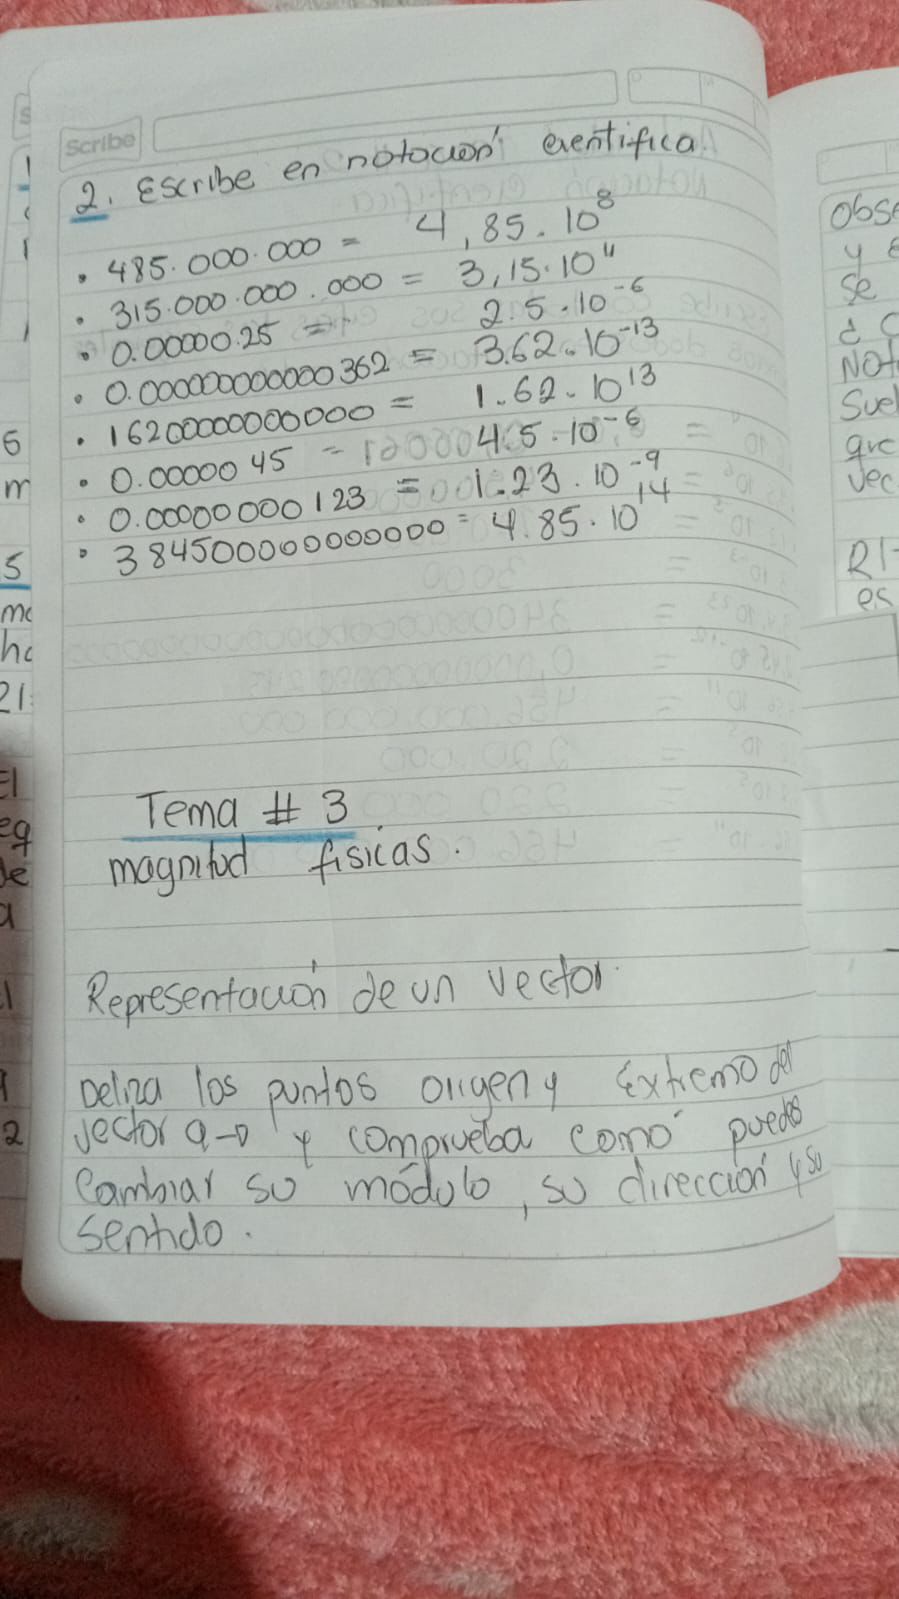 Scribe
2. Escribe en notación cientifica.
• 485.000.000 = 4,85.10⁸
• 315.000.000.000 = 3,15.10¹¹
• 0.0000025 = 2.5.10⁻⁶
• 0.000000000000362 = 3.62.10⁻¹³
• 16200000000000 = 1.62.10¹³
• 0.0000045 = 4.5.10⁻⁶
• 0.00000000123 = 1.23.10⁻⁹
• 384500000000000 = 4.85.10¹⁴
Tema # 3
magnitud fisicas.
Representación de un vector.
los puntos origen y Extremo del
vector a→ y comprueba como puedes
Cambiar su módulo, su dirección y su
sentido.